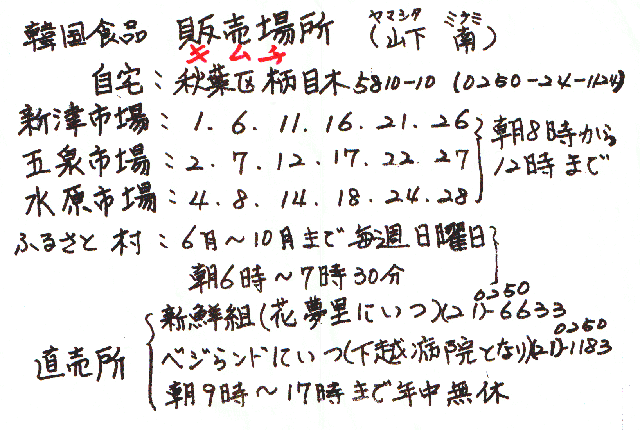 韓国食品 販売場所 (山下 南)
ヤマシタ ミナミ
キムチ
自宅:秋葉区柄目木5810-10 (0250-24-1124)
新津市場:1.6.11.16.21.26
五泉市場:2.7.12.17.22.27
水原市場:4.8.14.18.24.28
朝8時から
12時まで
ふるさと村:6月~10月まで毎週日曜日
朝6時~7時30分
直売所
新鮮組(花夢里にいつ)(0250 21)-6633
ベジランドにいつ(下越病院となり)(0250 21)-1183
朝9時~17時まで年中無休